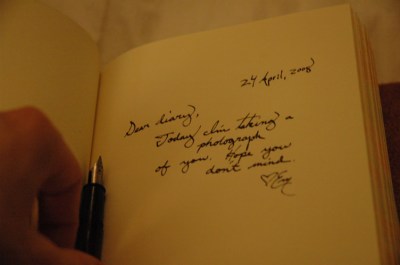 24 April, 2008
Dear diary,
Today I'm taking a
photograph
of you. Hope you
dont mind.